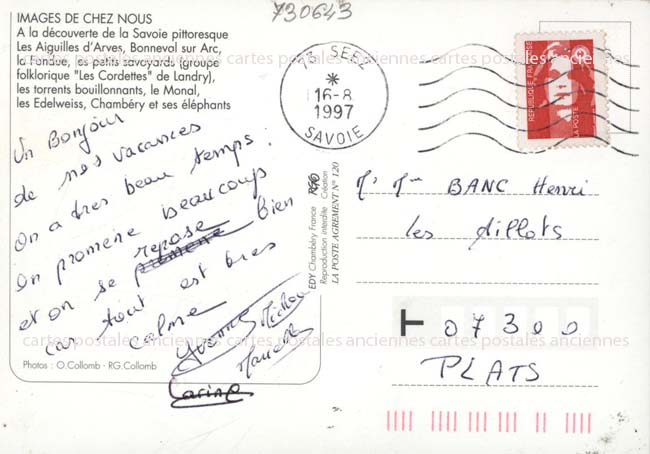 730643
IMAGES DE CHEZ NOUS
A la découverte de la Savoie pittoresque
Les Aiguilles d'Arves, Bonneval sur Arc,
la Fondue, les petits savoyards (groupe
folklorique "Les Cordettes" de Landry),
les torrents bouillonnants, le Monal,
les Edelweiss, Chambéry et ses éléphants
cartes postales anciennes cartes postales anciennes cartes postales anciennes
Un Bonjour
de nos vacances
On a tres beau temps.
On promène beaucoup
repose
et on se promene bien
car tout est tres
calme
Yvonne Michou
Marcelle
Carine
Photos : O.Collomb - RG.Collomb
EDY Chambéry France
Reproduction interdite Création
LA POSTE AGREMENT N° 120
73 SEEZ
16-8
1997
SAVOIE
REPUBLIQUE FRANÇAISE
LA POSTE
Mr Mme BANC Henri
les Aillots
T 07300
PLATS
cartes postales anciennes cartes postales anciennes cartes postales anciennes